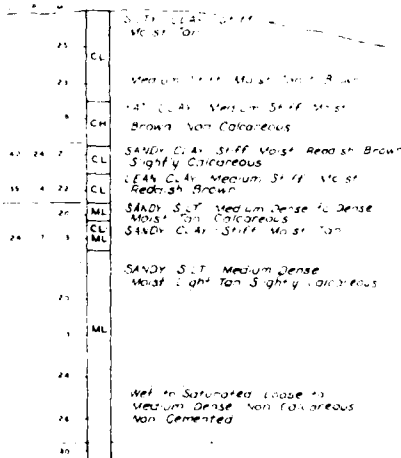 SILTY CLAY Stiff
Moist Tan
25
CL
23
Medium Stiff Moist Tan
FAT CLAY Medium Stiff Moist
CH
Brown Non Calcareous
42 24 7
SANDY CLAY Stiff Moist Reddish Brown
CL
Slightly Calcareous
LEAN CLAY Medium Stiff Moist
22
CL
Reddish Brown
20
ML
SANDY SILT Medium Dense to Dense
Moist Tan Calcareous
CL
SANDY CLAY Stiff Moist Tan
24
ML
SANDY SILT Medium Dense
Moist Light Tan Slightly Calcareous
ML
24
Wet to Saturated Loose to
Medium Dense Non Calcareous
24
Non Cemented